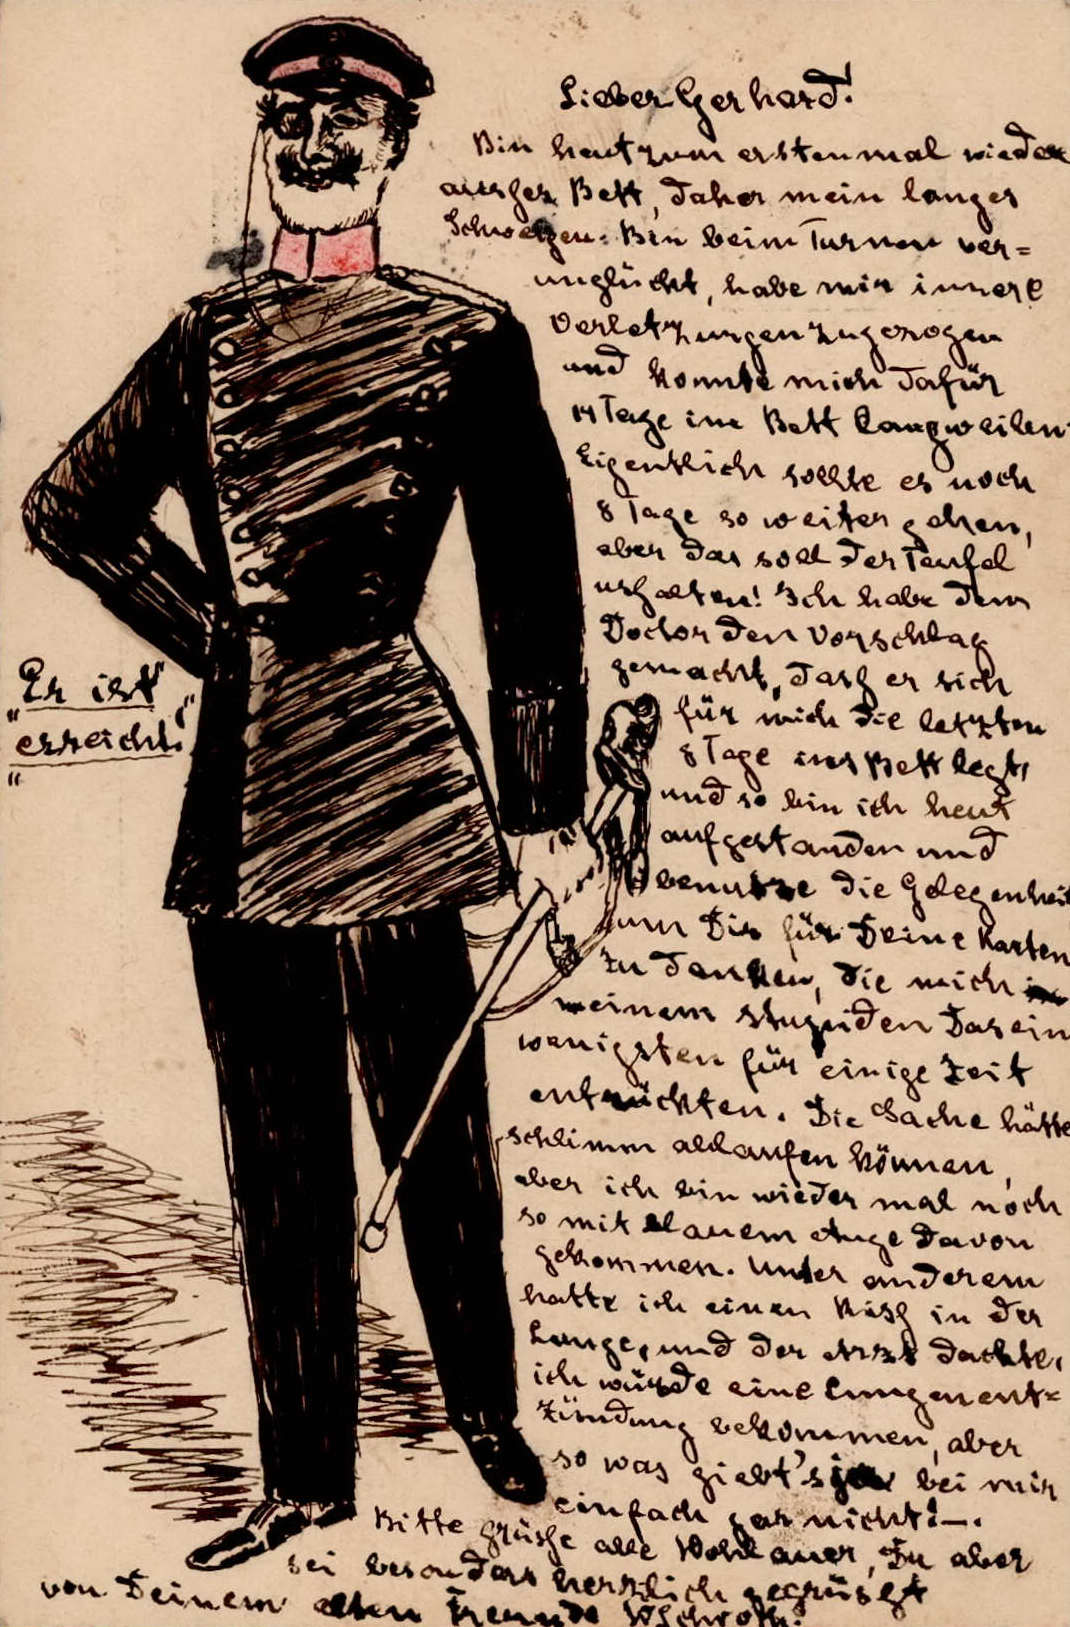 Lieber Gerhard!
Bin heut zum erstenmal wieder
ausser Bett, daher mein langes
Schweigen. Bin beim Turnen ver=
unglückt, habe mir innere
Verletzungen zugezogen
und konnte mich dafür
14 Tage im Bett langweilen.
Eigentlich sollte es noch
8 Tage so weiter gehen,
aber das soll der Teufel
ushalten! Ich habe dem
Doctor den Vorschlag
gemacht, dass er sich
für mich die letzten
8 Tage ins Bett legt,
und so bin ich heut
aufgestanden und
benutze die Gelegenheit
um Dir für Deine Karten
zu danken, die mich
meinem stupiden Dasein
wenigsten für einige Zeit
entrückten. Die Sache hätte
schlimm ablaufen können,
aber ich bin wieder mal noch
so mit blauem Auge davon
gekommen. Unter anderem
hatte ich einen Riss in der
Lunge, und der Arzt dachte,
ich würde eine Lungenent=
zündung bekommen, aber
so was giebt's bei mir
einfach gar nicht! —.
Bitte grüsse alle Wohlauer, Du aber
sei besonders herzlich gegrüsst
von Deinem alten Freunde WSchroth.
"Er ist
erreicht."